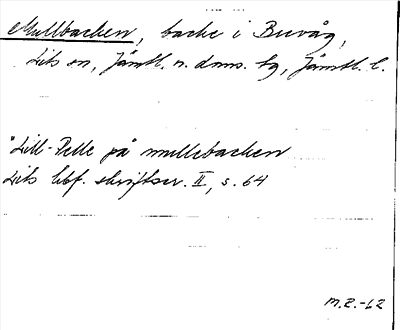 Mullbacken, backe i Brevåg,
Lits sn, Jämtl. n. doms. tg, Jämtl. l.
"Lill-Pelle på mullebacken
Lits hbf. skriftser. II, s. 64
M.R.-62